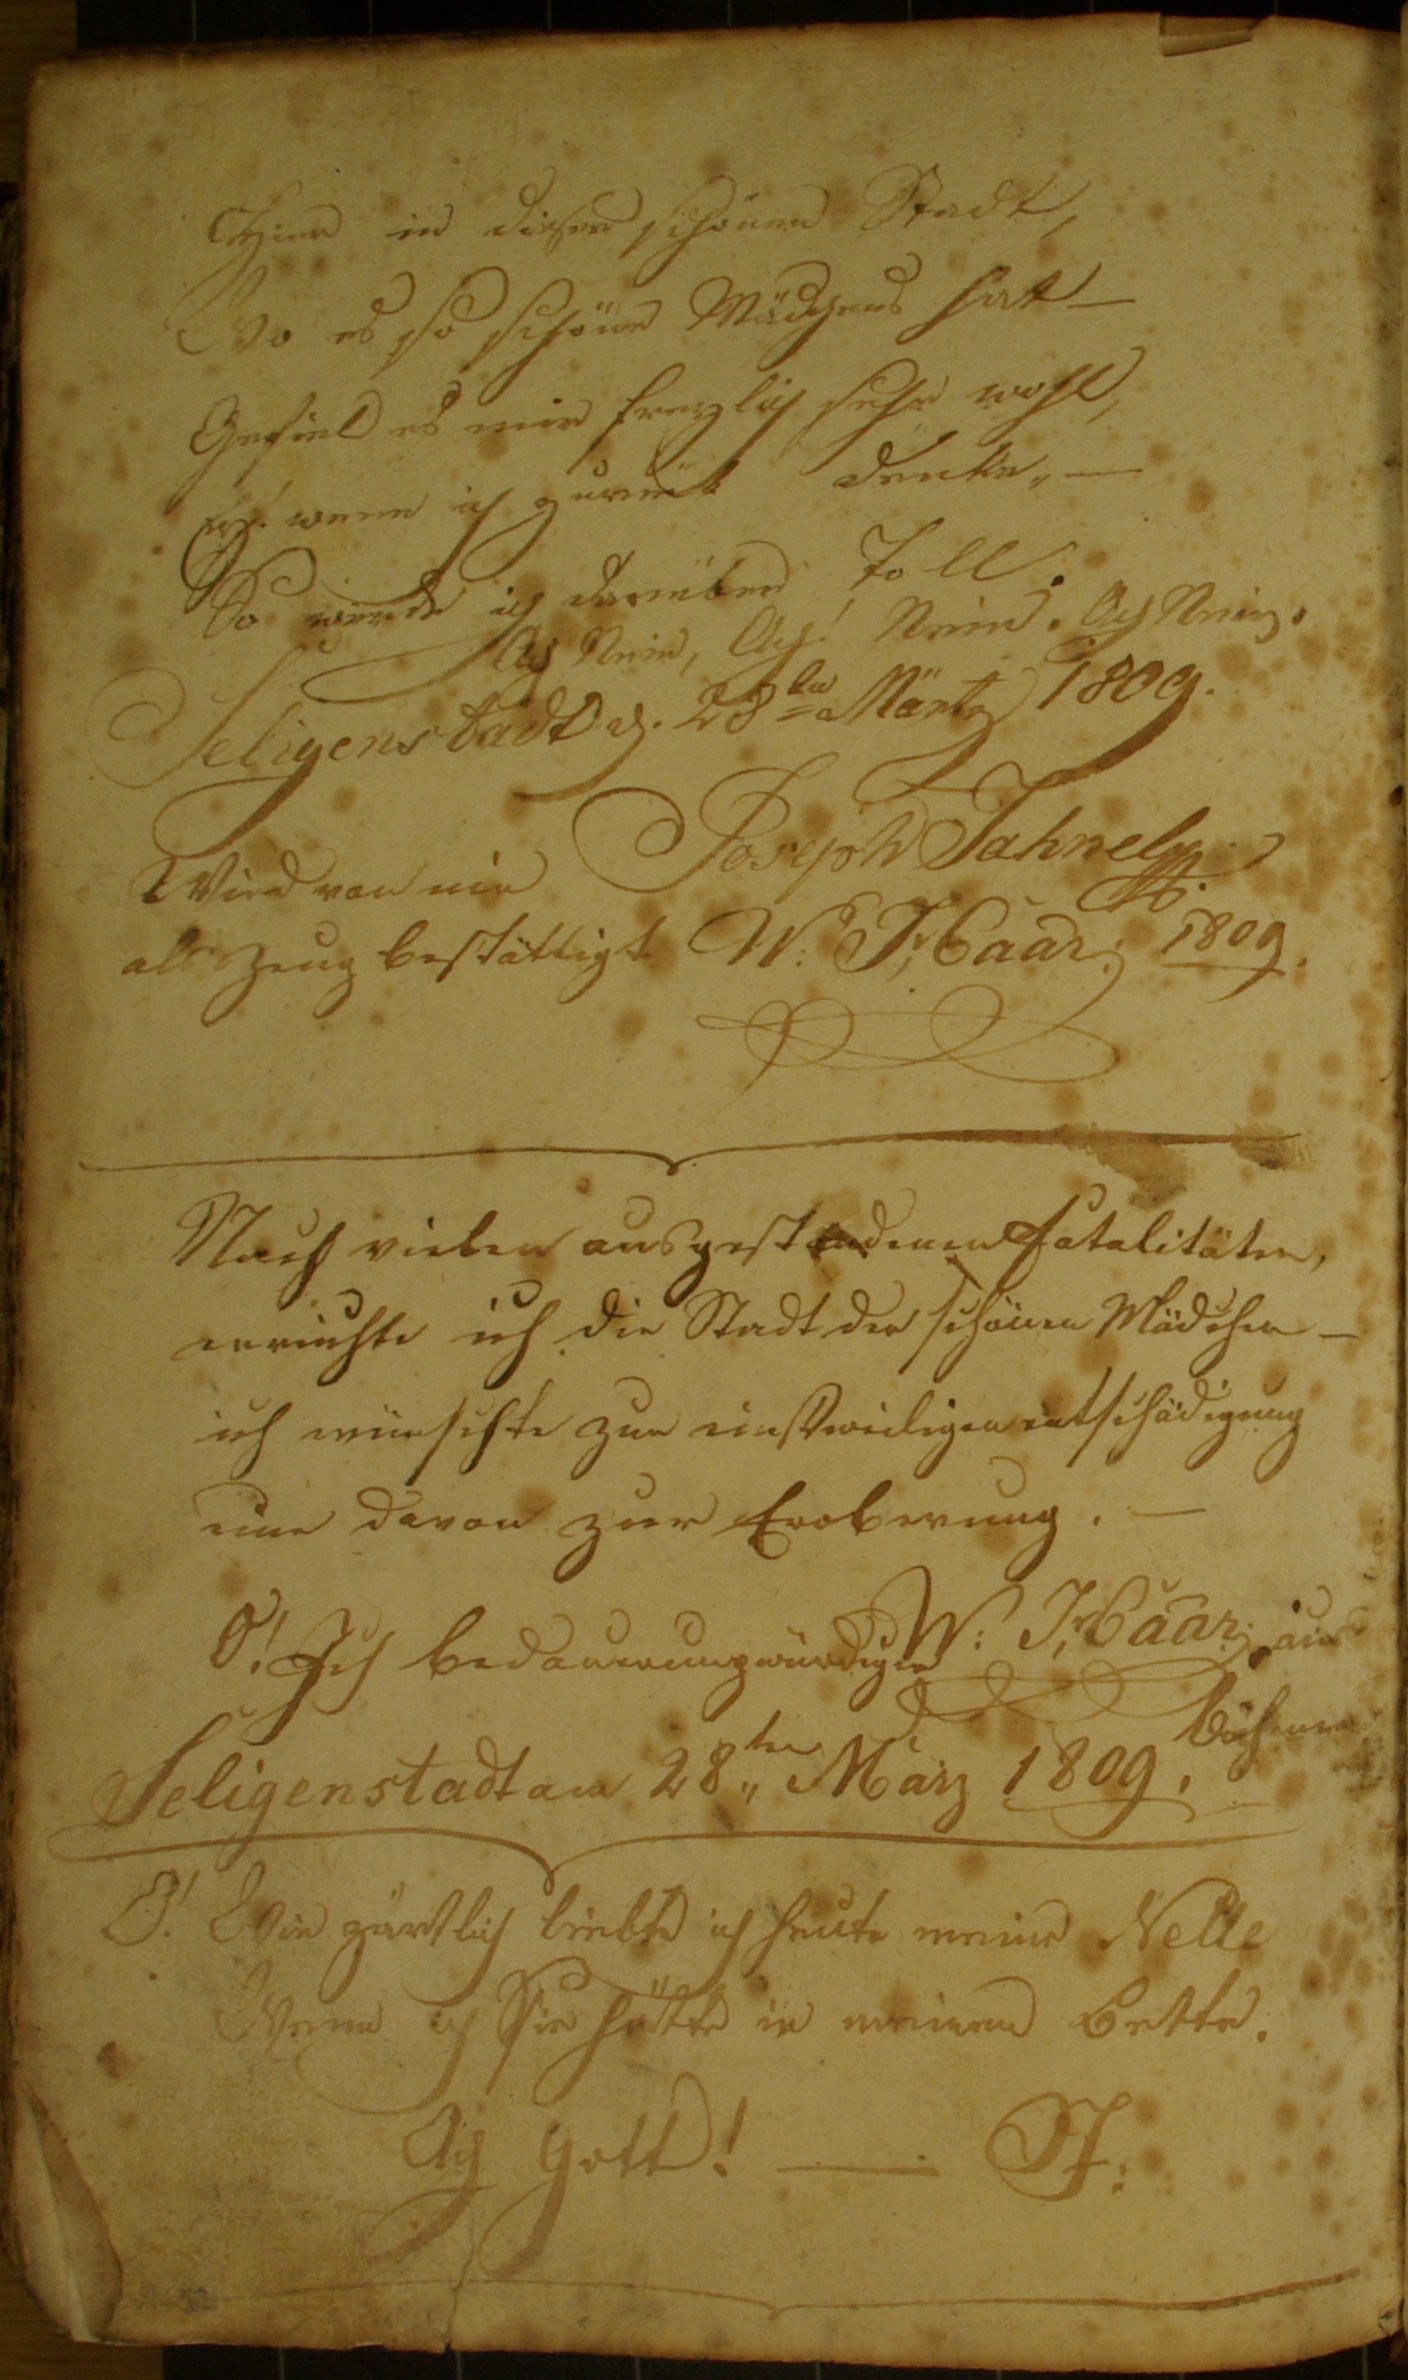 Hier in dieser schönen Stadt,
Wo es so schöne Mädgens hat —
Gefiel es mir freylich sehr wohl,
Ach! wenn ich zurück denke, —
So werde ich darüber Toll.
Ach Nein, Ach! Nein. Ach Nein.
Seligenstadt d. 28ten März 1809.
Joseph Jahnel
Wird von mir
als Zeug bestättigt W: F: Haar: 1809.
Nach vielen ausgestandenen Fatalitäten,
erreichte ich die Stadt der schönen Mädchen —
ich wünschte zur einstweiligen entschädigung
eine davon zur Eroberung. —
W: F: Haar: aus
O! Ich bedauerungwürdiger
Böhmen
Seligenstadt am 28ten März 1809.
O! Wie zärtlich liebte ich heute meine Nette
Wenn ich Sie hätte in meinem Bette.
Ach Gott! — J: